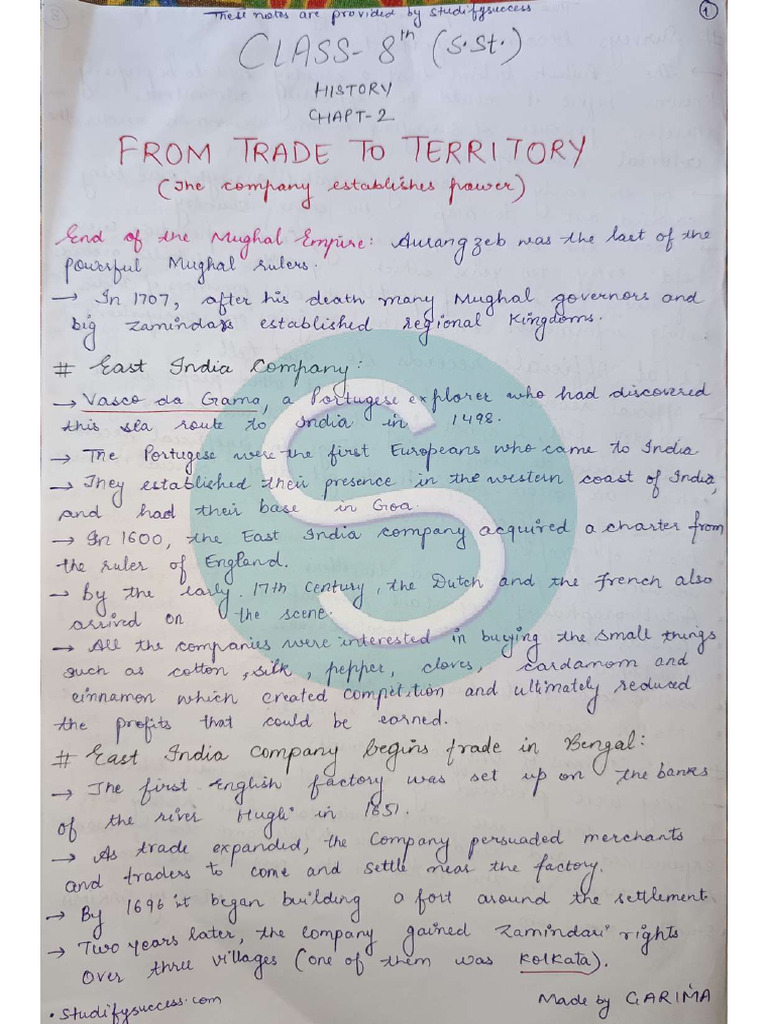 These notes are provided by studifysuccess
1
CLASS-8th (S.St.)
HISTORY
CHAPT-2
FROM TRADE TO TERRITORY
(The company establishes power)
End of the Mughal Empire: Aurangzeb was the last of the
powerful Mughal rulers.
→ In 1707, after his death many Mughal governors and
big zamindars established regional Kingdoms.
# East India Company:
→ Vasco da Gama, a Portugese explorer who had discovered
this sea route to India in 1498.
→ The Portugese were the first Europeans who came to India
→ They established their presence in the western coast of India,
and had their base in Goa.
→ In 1600, the East India company acquired a charter from
the ruler of England.
→ By the early 17th Century, the Dutch and the French also
arrived on the scene.
→ All the companies were interested in bucying the small things
such as cotton, silk, pepper, cloves, cardamom and
cinnamon which created competition and ultimately reduced
the profits that could be earned.
# East India company begins trade in Bengal:
→ The first English factory was set up on the banks
of the river Hugli in 1851.
→ As trade expanded, the Company persuaded merchants
and traders to come and settle near the factory.
→ By 1696 it began building a fort around the settlement.
→ Two years later, the company gained zamindari rights
over three villages (one of them was Kolkata).
• Studifysuccess.com
Made by GARIMA